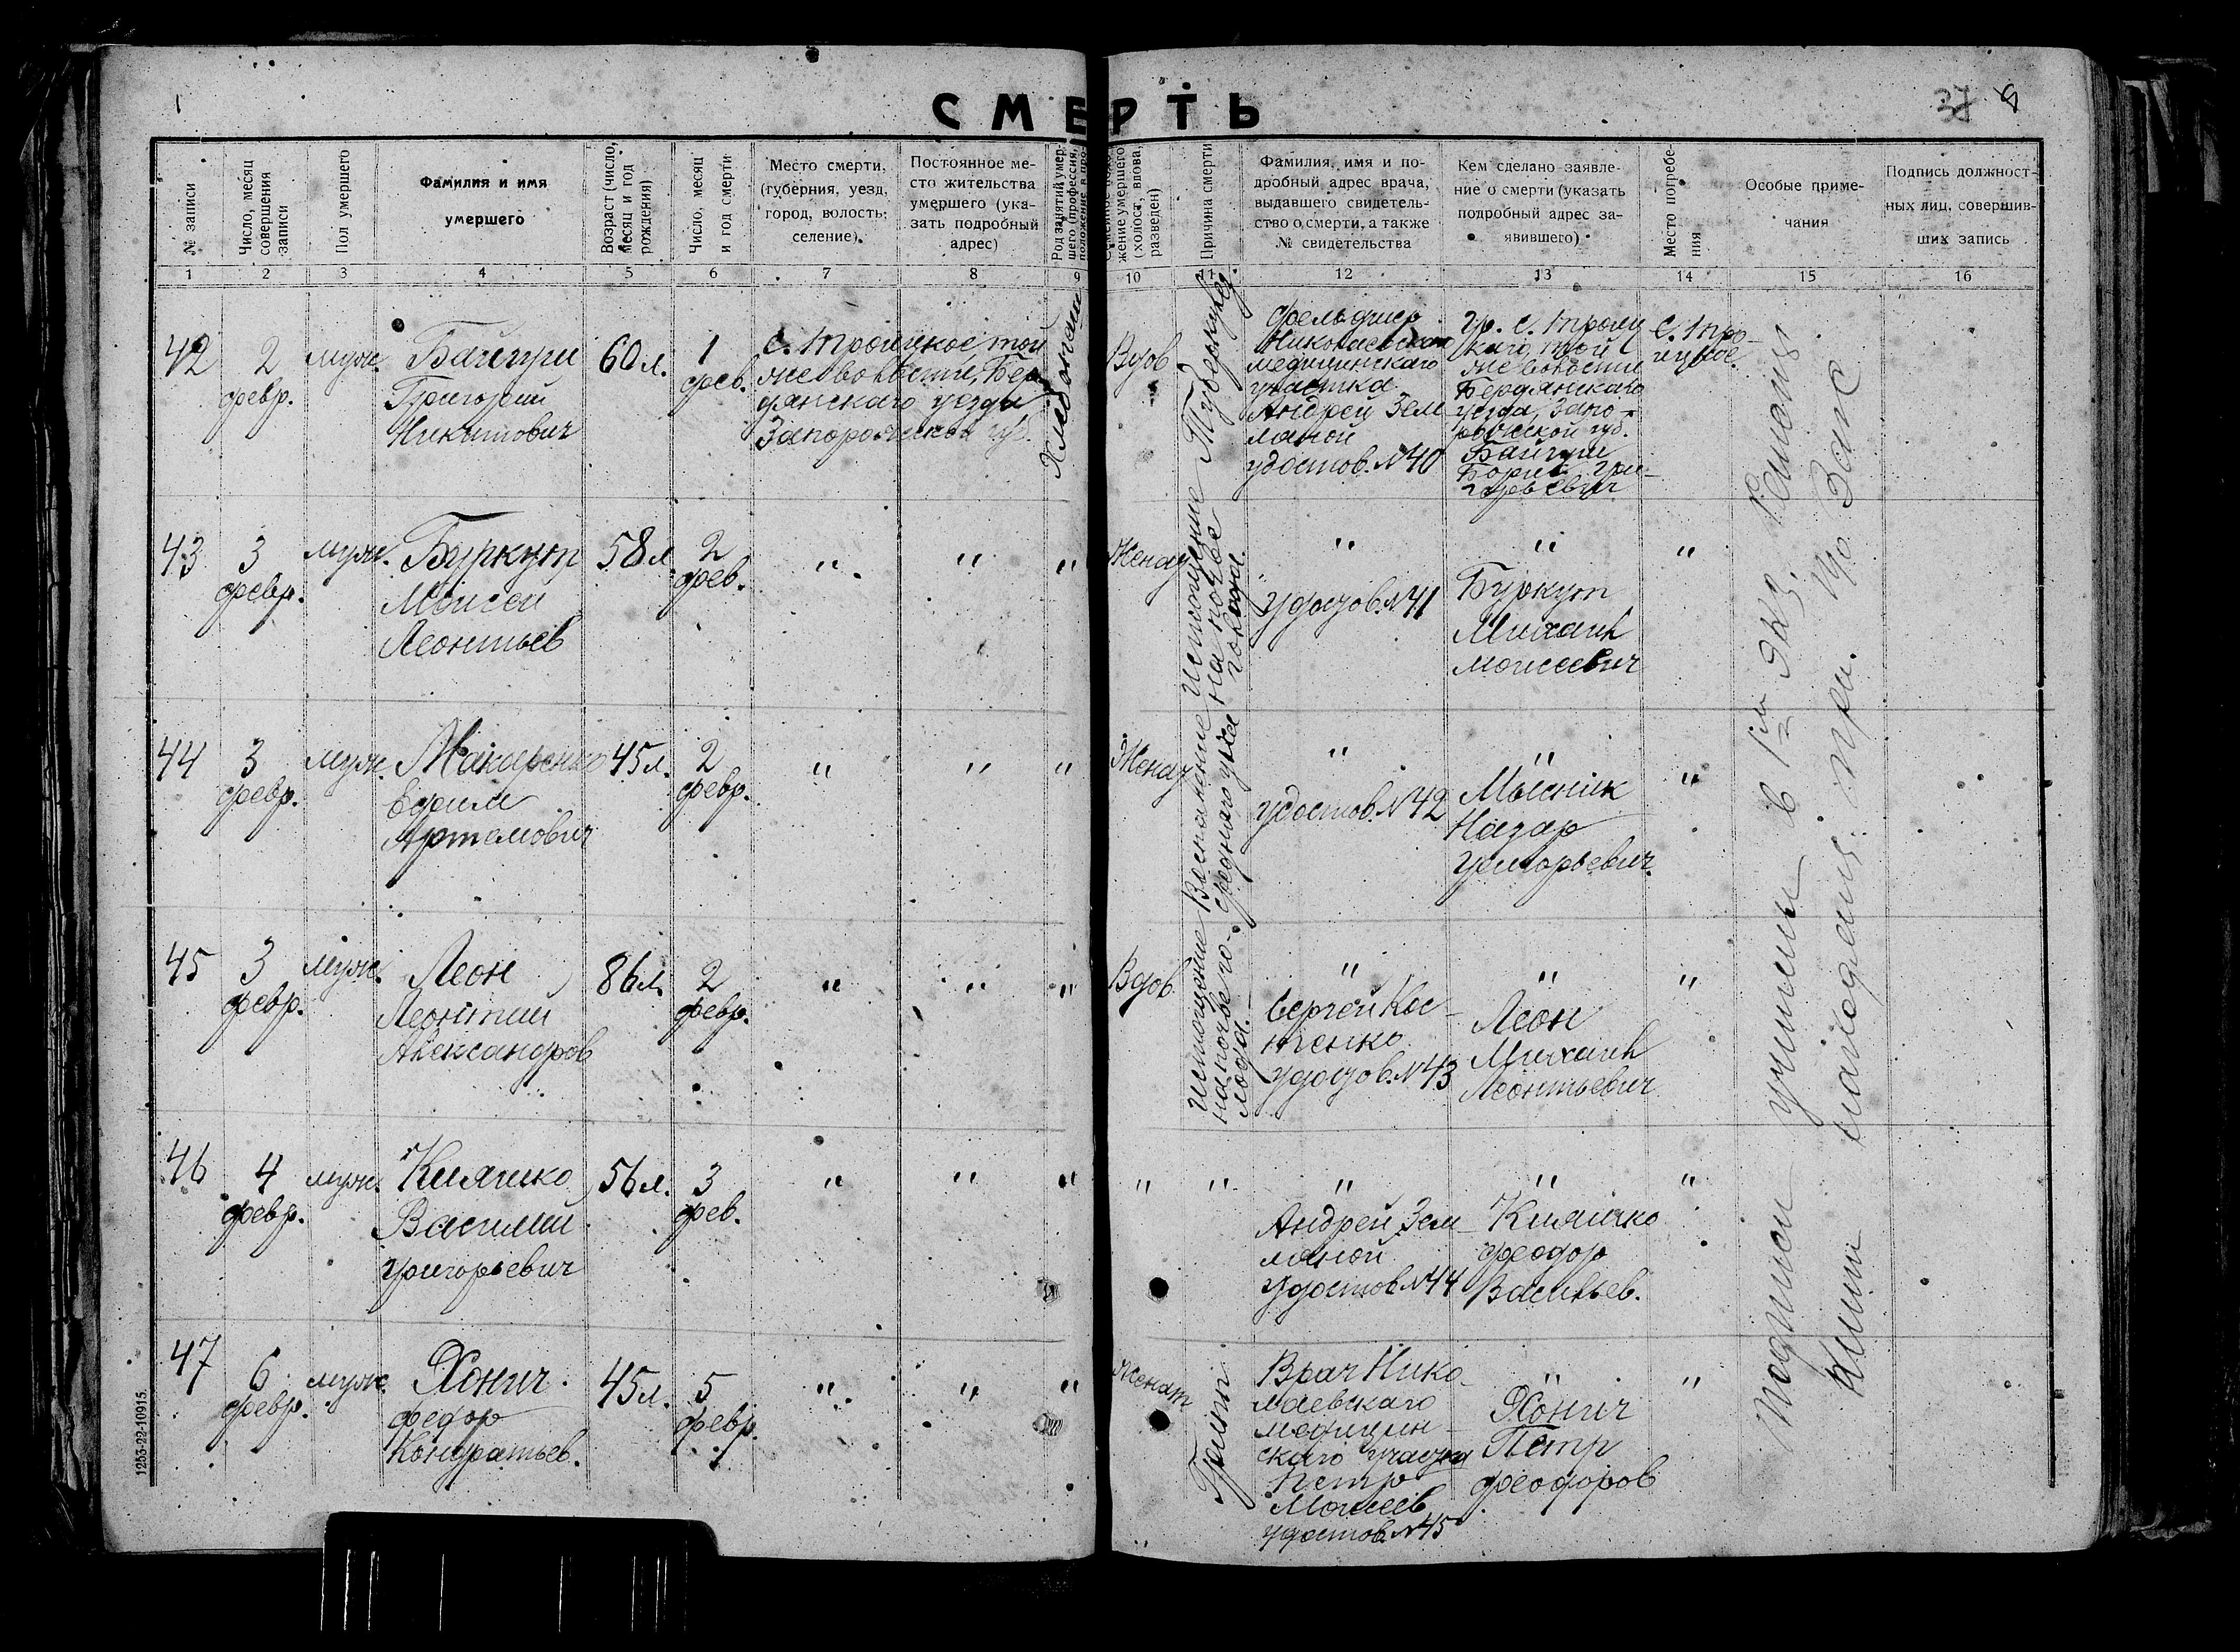 СМЕРТЬ
37
№ записи
Число, месяц совершения записи
Пол умершего
Фамилия и имя
умершего
Возраст (число, месяц и год рождения)
Число, месяц и год смерти
Место смерти,
(губерния, уезд,
город, волость,
селение).
Постоянное ме-
сто жительства
умершего (ука-
зать подробный
адрес)
Род занятий умер-
шего (профессия,
положение в про-
жение умершего
(холост, вдова,
разведен)
Причина смерти
Фамилия, имя и по-
дробный адрес врача,
выдавшего свидетель-
ство о смерти, а также
№ свидетельства
Кем сделано заявле-
ние о смерти (указать
подробный адрес за-
явившего)
Место погребе-
ния
Особые приме-
чания
Подпись должност-
ных лиц, совершив-
ших запись
1 2 3 4 5 6 7 8 9 10 11 12 13 14 15 16
42
2
февр.
муж.
Байгуш
Григорий
Никитович
60 л.
1
фев.
С. Троицкое той
же волости, Бер-
дянскаго уезда
Запорожской губ.
Хлебопаш
Вдов
Туберкулез
фельдшер
Николаевскаго
медицинскаго
участка
Андрей Зем
ляной
удостов. №40
Гр. с. Троиц
каго, той
же волости
Бердянскаго
уезда, Запо-
рожской губ.
Байгуш
Борис Гри-
горьевич
С. Тро-
ицкое.
43
3
февр.
муж.
Буркут
Моисей
Леонтьев
58 л.
2
фев.
" " "
Женат
Истощение на почве голода.
"
удостов. №41
"
Буркут
Михаил
Моисеевич
"
44
3
февр.
муж.
Макаренко
Ефим
Артемович
45 л.
2
февр.
" " "
Женат
Воспаление среднего уха
"
удостов. №42
"
Мысник
Назар
Григорьевич.
"
45
3
февр.
муж.
Леон
Леонтий
Александров
86 л.
2
февр.
" " "
Вдов.
Истощение
на почве го-
лода.
"
Сергей Кос-
тенко
удостов. №43
"
Леон
Михаил
Леонтьевич
"
46
4
февр.
муж.
Кияшко
Василий
Григорьевич
56 л.
3
фев.
" " " " "
"
Андрей Зем-
ляной
Удостов №44
"
Кияшко
Феодор
Васильев.
"
47
6
февр.
муж.
Хонич
Федор
Кондратьев.
45 л.
5
февр.
" " "
женат
Грипп
Врач Нико-
лаевскаго
медицин-
скаго участка
Петр
Моисеев
удостов. №45
"
Хонич
Петр
Феодоров
"
в 1м экз.
книги находящ. при
1253-22-10915